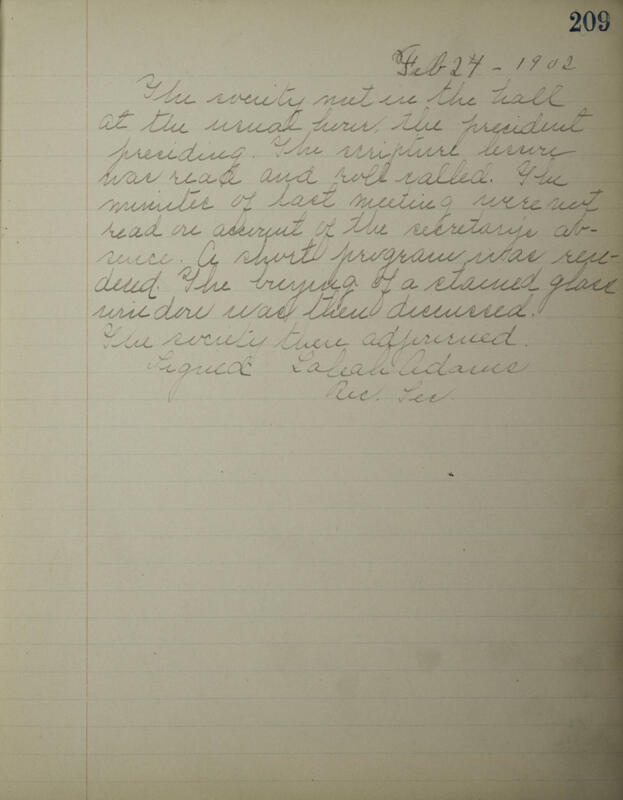 209
Feb 24 - 1902
The society met in the hall
at the usual hour, the president
presiding. The scripture lesson
was read and roll called. The
minutes of last meeting were not
read on account of the secretary's ab-
sence. A short program was ren-
dered. The buying of a stained glass
window was then discussed.
The society then adjourned.
Signed Adams
Rec. Sec.